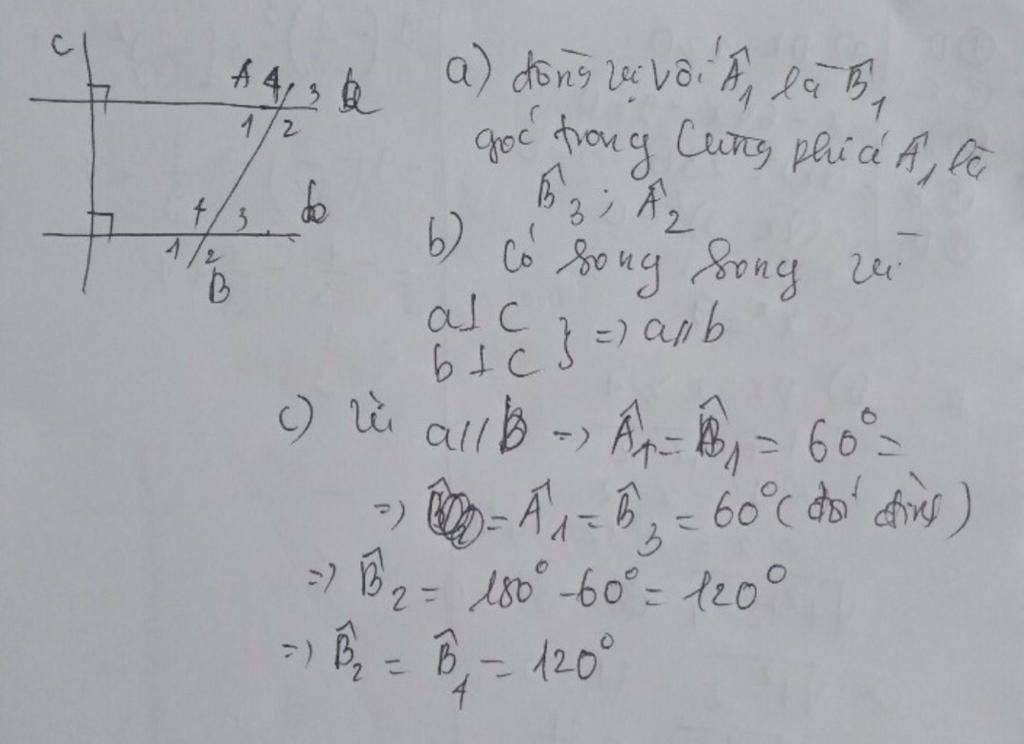 c
A 4 3 a
1 2
4 3 b
1 2
B
a) đồng vị với Â₁ là B̂₁
góc trong cùng phía Â₁ là
B̂₃ ; Â₂
b) Có song song vì
a⊥c
b⊥c } => a//b
c) Vì a//B => Â₁ = B̂₁ = 60° =
=> = Â₁ = B̂₃ = 60° (đối đỉnh)
=> B̂₂ = 180° - 60° = 120°
=> B̂₂ = B̂₄ = 120°